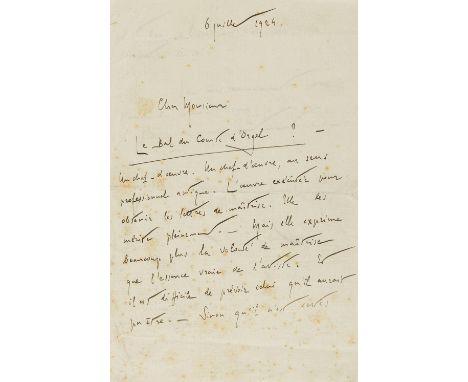 6 juillet 1924.
Cher Monsieur
Le Bal du Comte d'Orgel ? —
Un chef-d'œuvre. Un chef-d'œuvre, au sens
professionnel antique. L'œuvre exécutée pour
obtenir les lettres de maîtrise. Elle les
mérite pleinement. — Mais elle exprime
beaucoup plus la volonté de maîtrise
que l'essence vraie de l'artiste. Et
il est difficile de prévoir celui qu'il aurait
pu être. — Sinon qu'il eût